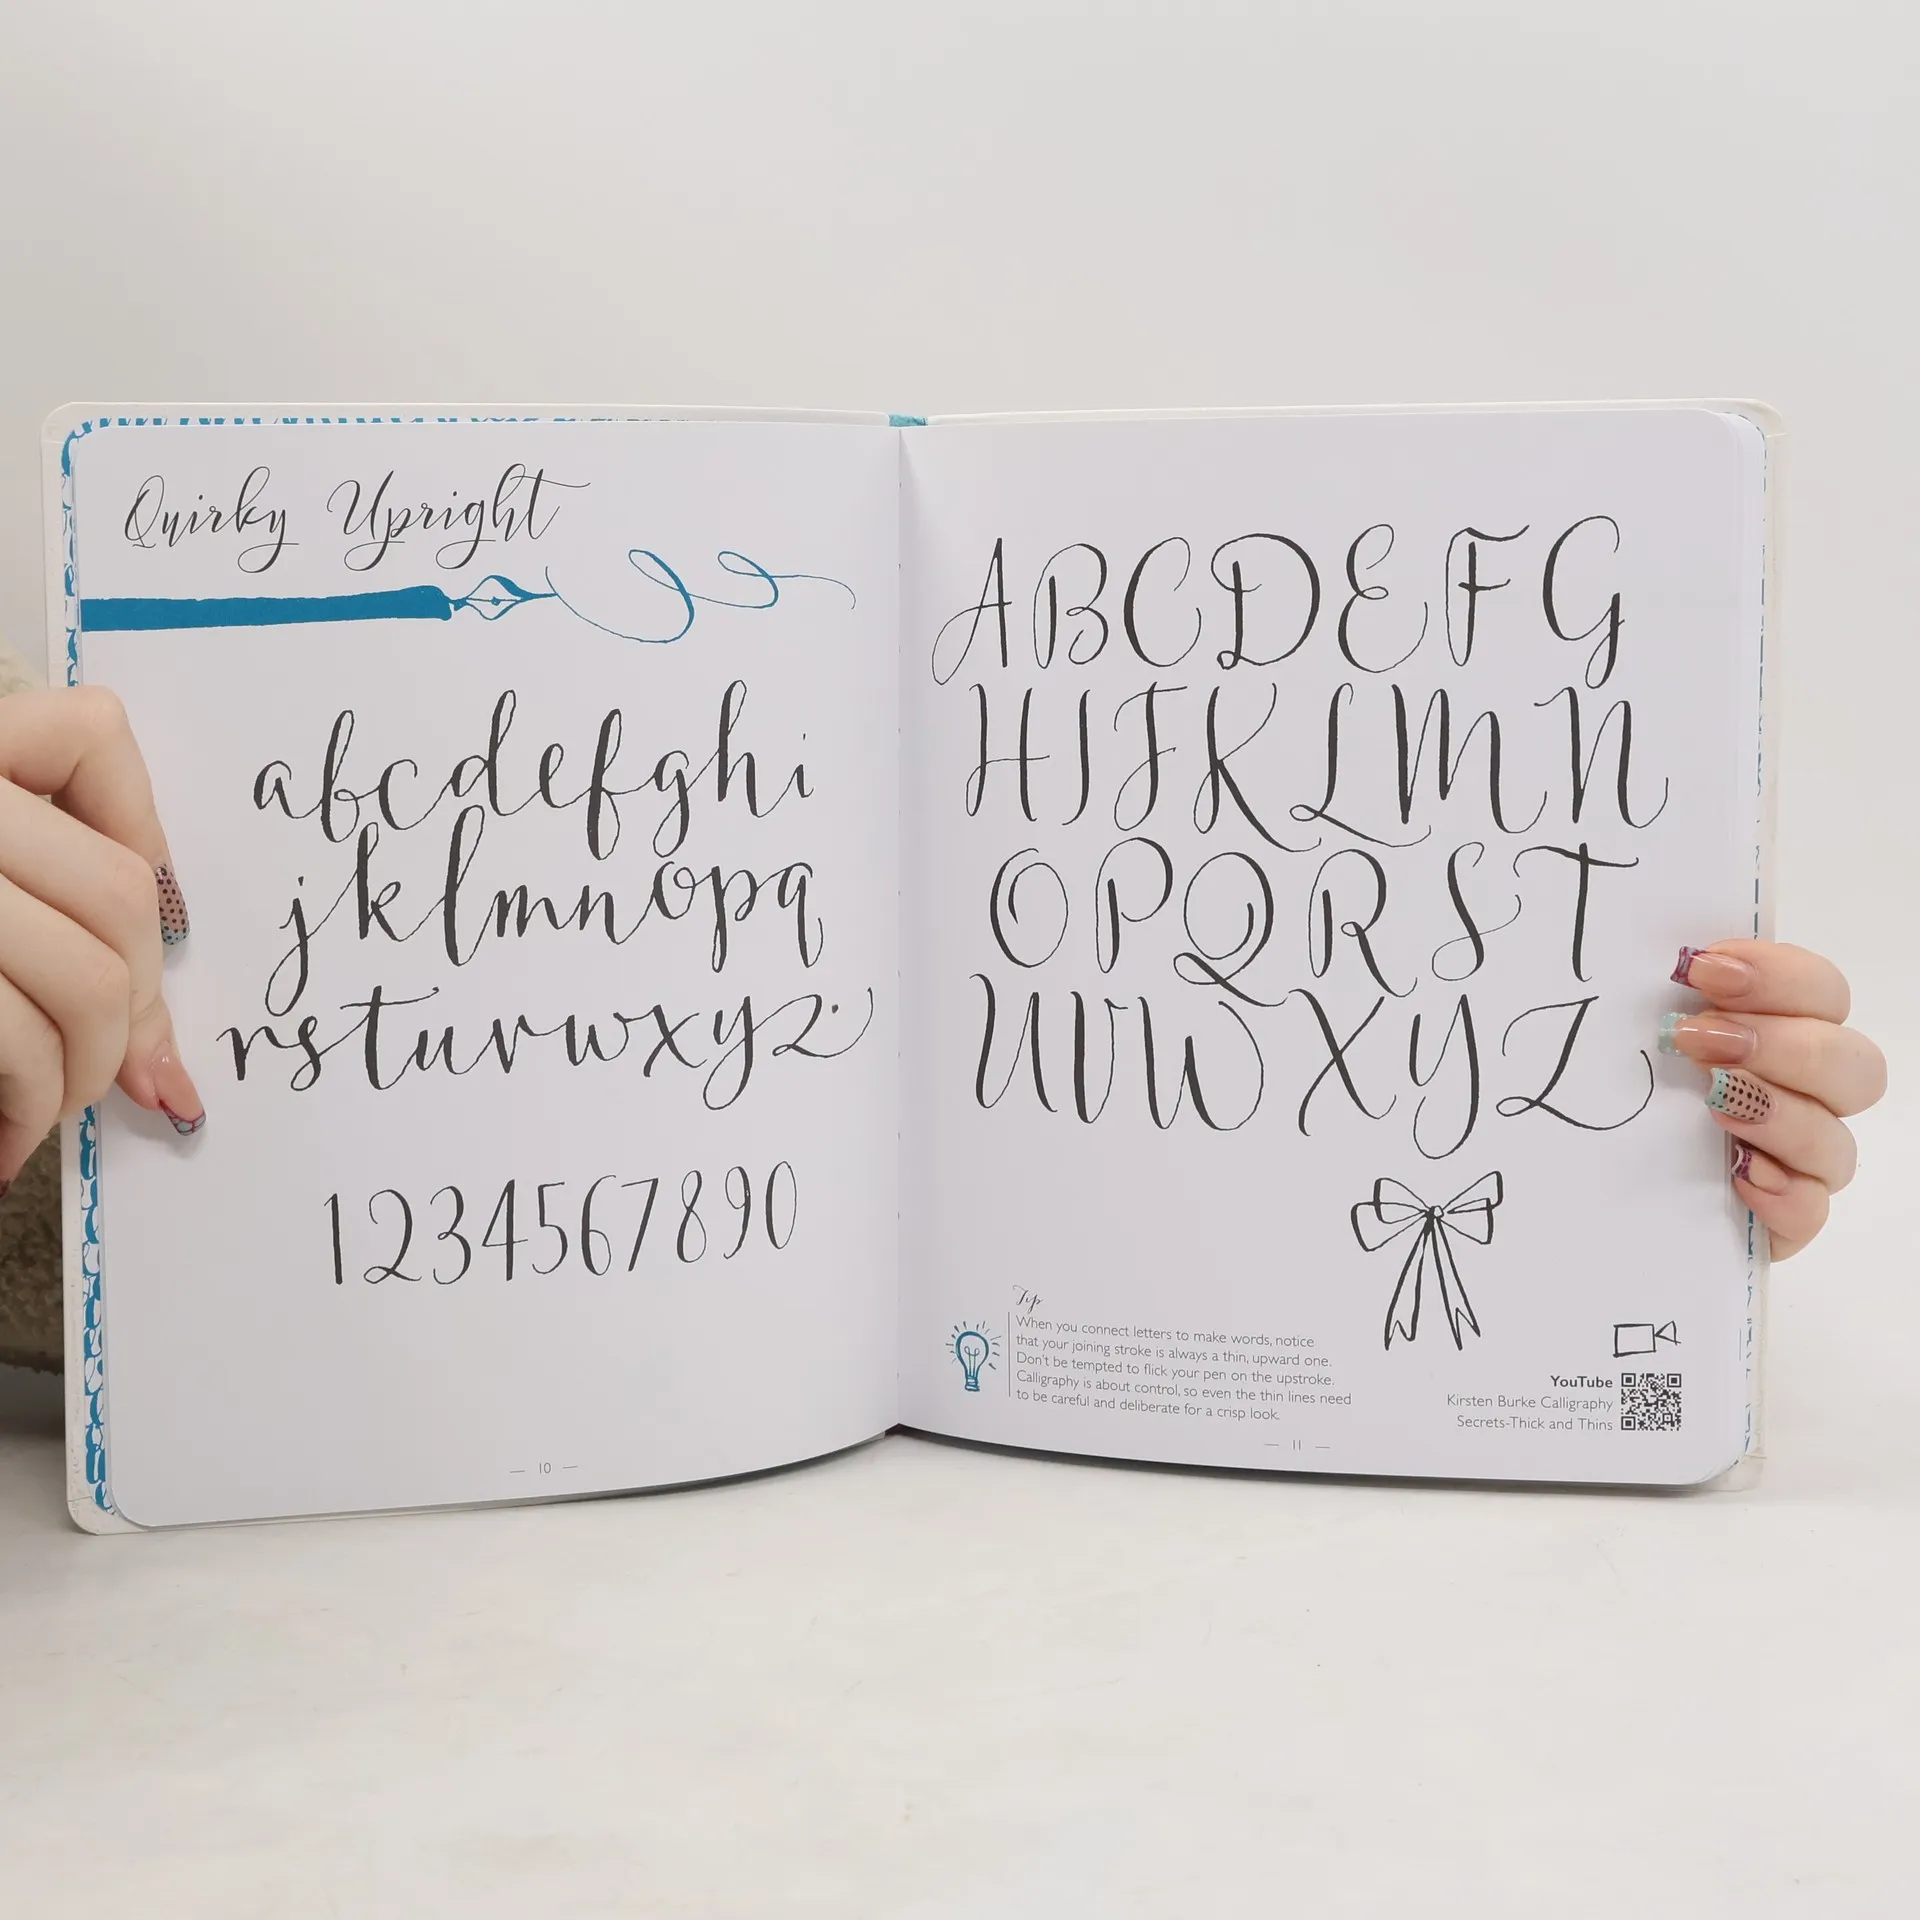 Quirky Upright
abcdefghi
jklmnopq
rstuvwxyz
1234567890
— 10 —
ABCDEFG
HIJKLMN
OPQRST
UVWXYZ
Tip
When you connect letters to make words, notice
that your joining stroke is always a thin, upward one.
Don't be tempted to flick your pen on the upstroke.
Calligraphy is about control, so even the thin lines need
to be careful and deliberate for a crisp look.
YouTube
Kirsten Burke Calligraphy
Secrets-Thick and Thins
— 11 —